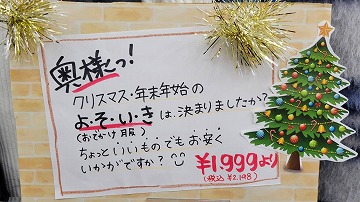 奥様っ!
クリスマス・年末年始の
よ・そ・い・き は、決まりましたか?
(おでかけ服)
ちょっといいものでもお安く
いかがですか?
¥1,999より
(税込 ¥2,198)